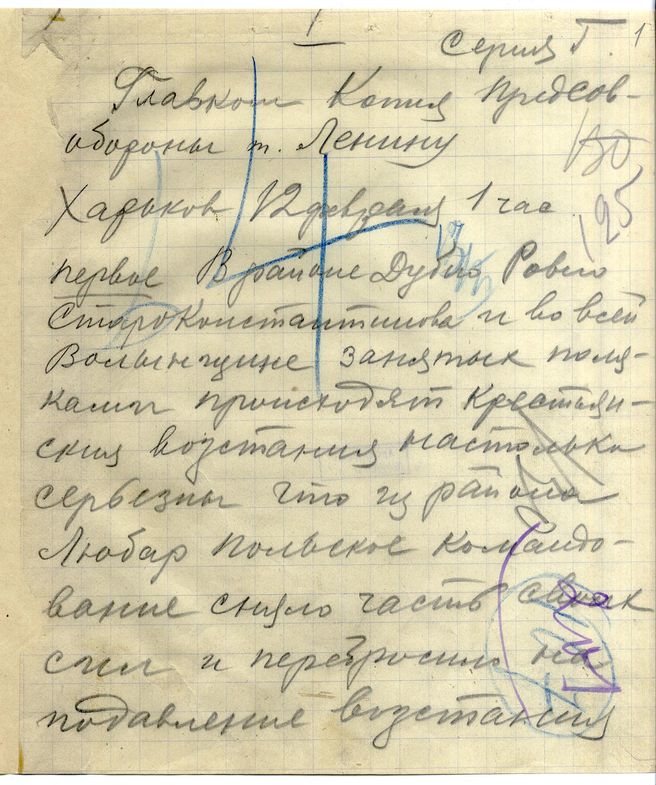 1
Серия Г. 1
Главком Копия Предсов-
обороны т. Ленину
Харьков 12 февраля 1 час
125
первое В районе Дубно Ровно
СтароКонстантинова и во всей
Волынщине занятых поля-
ками происходят крестьян-
ския возстания настолько
серьезны что из района
Любар Польское командо-
вание сняло часть своих
сил и перебросило на
подавление возстания